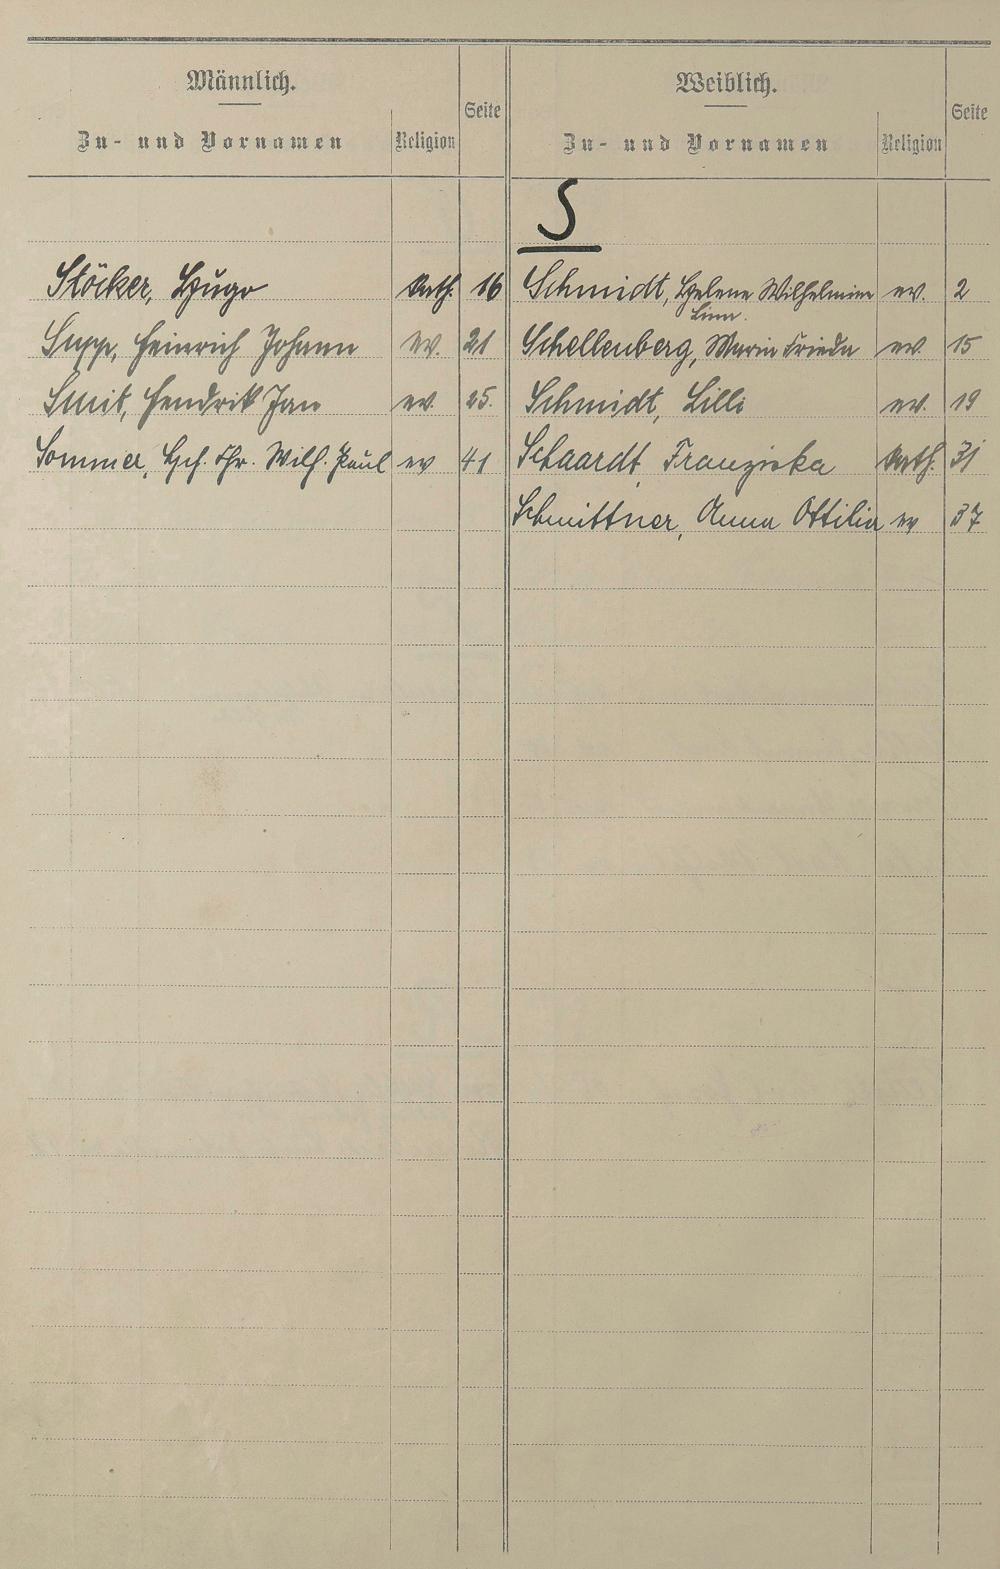 Männlich.
Zu- und Vornamen Religion Seite
Weiblich.
Zu- und Vornamen Religion Seite
S
Stöcker, Hugo kath. 16
Supp, Heinrich Johann ev. 21
Smit, Hendrik Jan ev. 25.
Sommer, Hch. Chr. Wilh. Paul ev 41
Schmidt, Helene Wilhelmine ev. 2
Lina.
Schellenberg, Maria Frieda ev. 15
Schmidt, Lilli ev. 19
Schaardt, Franziska kath. 31
Schmittner, Anna Ottilia ev 37